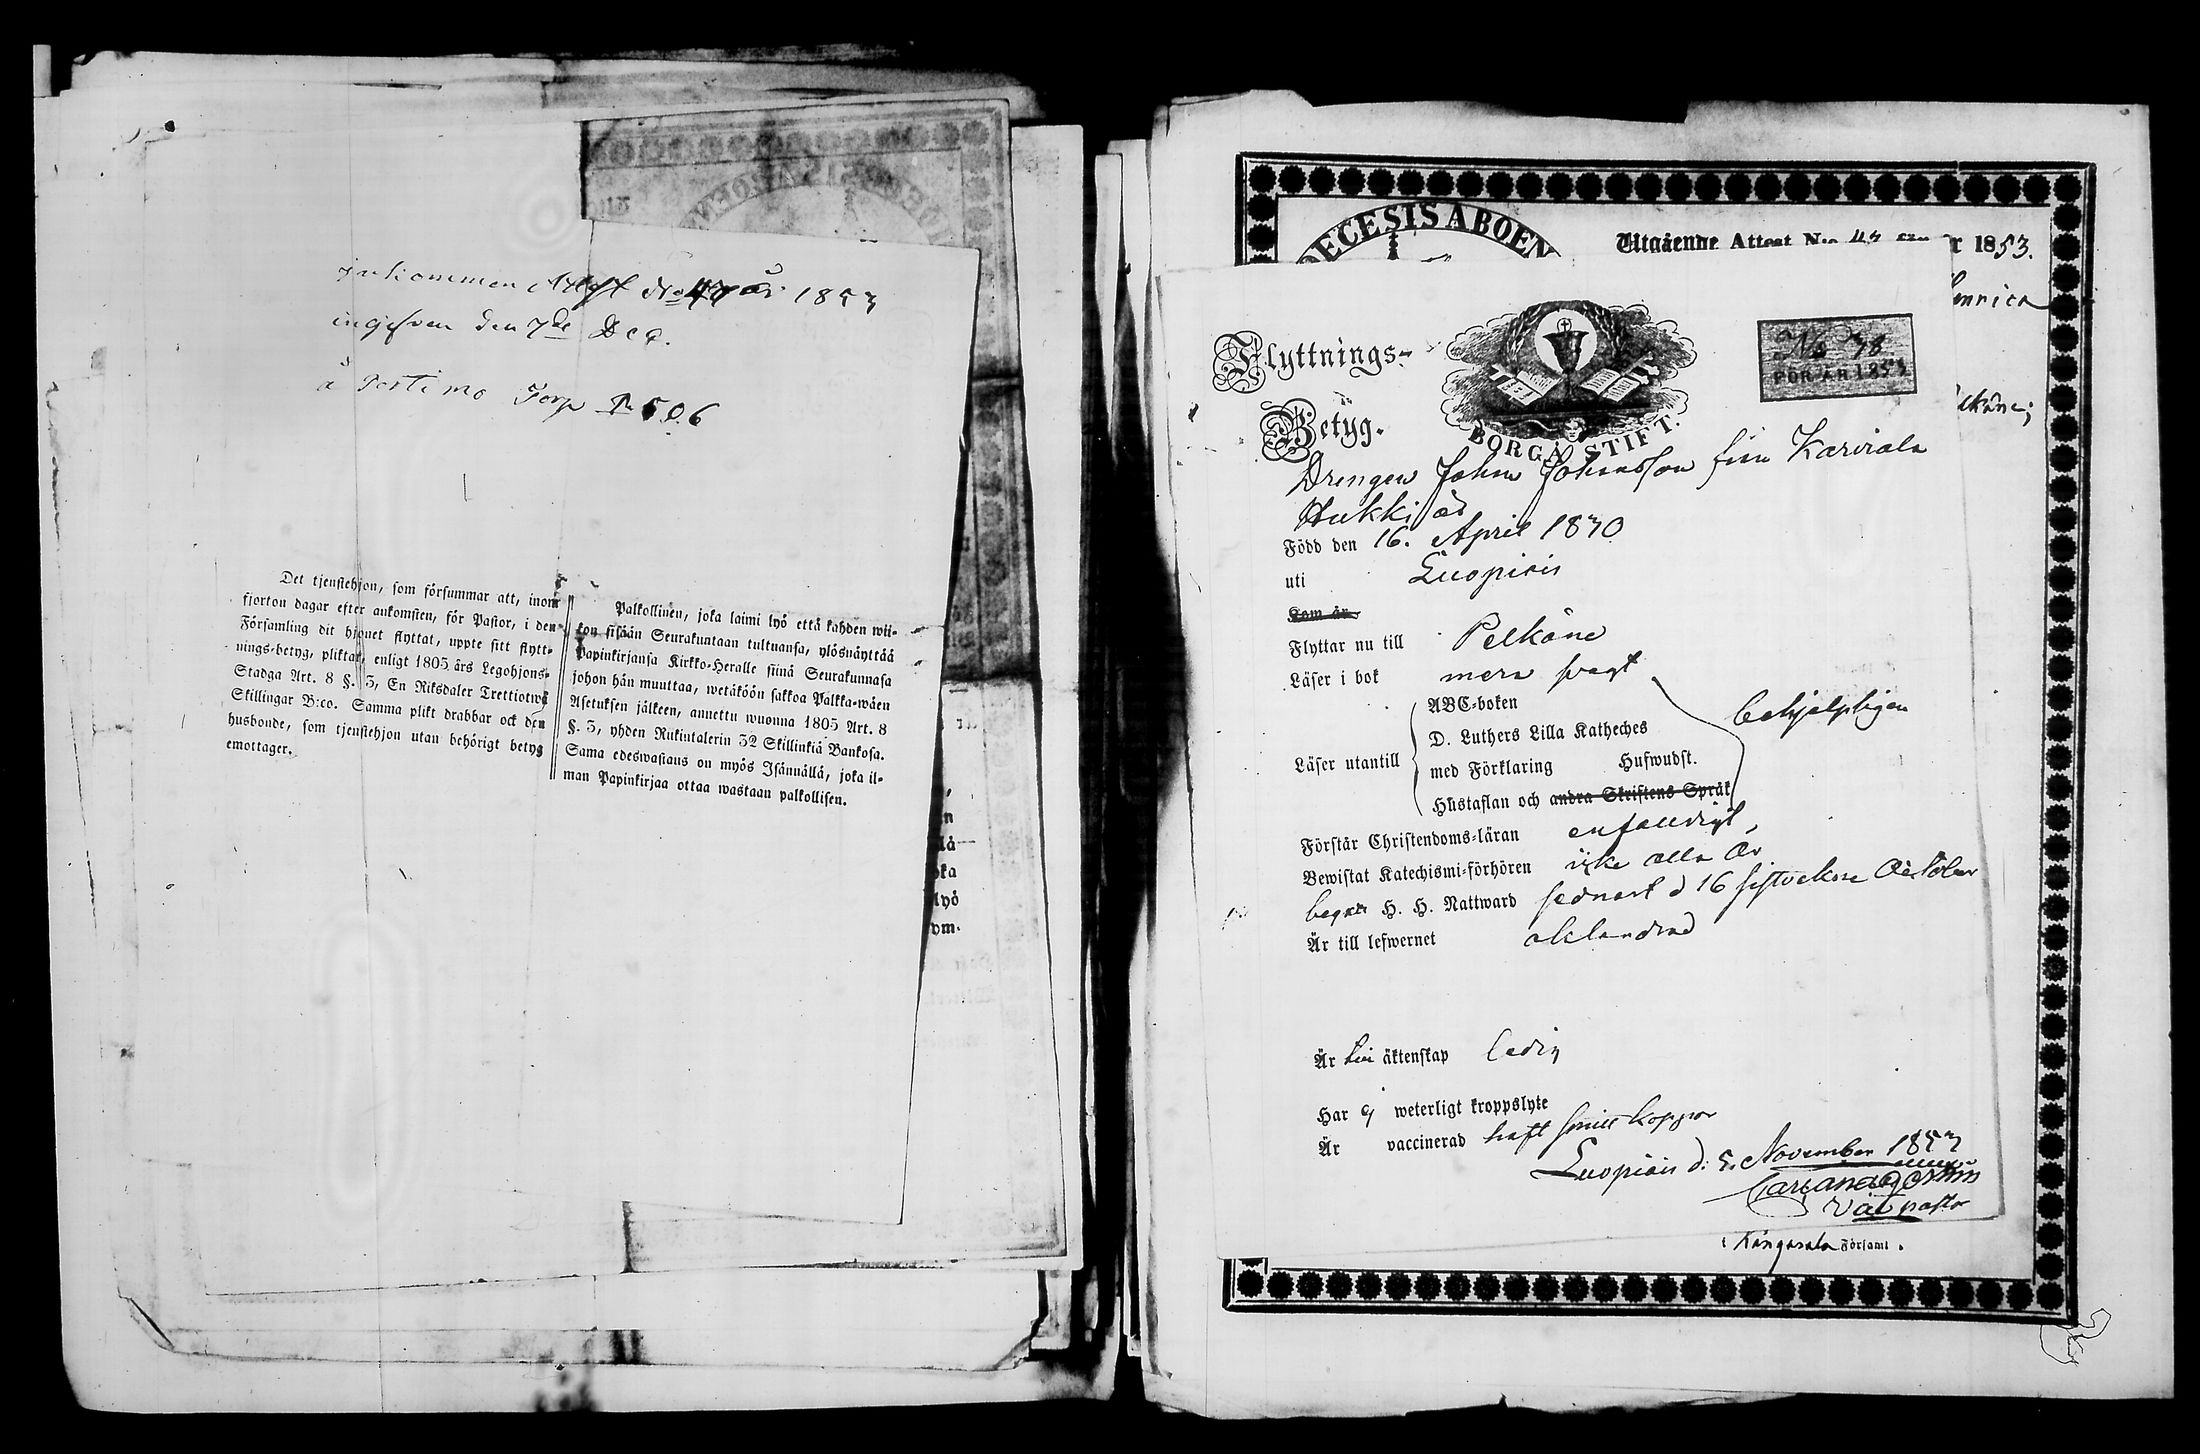 Inkommen Attest No 47 år 1853
ingifven den 7de Dec.
å Portimo Torp P. 506
Det tjenstehjon, som försummar att, inom
fjorton dagar efter ankomsten, för Pastor, i den
Församling dit hjonet flyttat, uppte sitt flytt-
nings-betyg, pliktar, enligt 1805 års Legohjons-
Stadga Art. 8 §. 3, En Riksdaler Trettiotwå
Skillingar B:co. Samma plikt drabbar ock den
husbonde, som tjenstehjon utan behörigt betyg
emottager.
Palkollinen, joka laimi lyö että kahden wii-
kon sisään Seurakuntaan tultuansa, ylösnäyttää
Papinkirjansa Kirkko-Heralle siinä Seurakunnasa
johon hän muuttaa, wetäköön sakkoa Palkka-wäen
Asetuksen jälkeen, annettu wuonna 1805 Art. 8
§. 3, yhden Riikintalerin 32 Skillinkiä Bankosa.
Sama edeswastaus on myös Isännällä, joka il-
man Papinkirjaa ottaa wastaan palkollisen.
n
lä
oka
lyö
ym-
DECESIS ABOEN
Utgående Attest N:o 47 r 1853.
lkäne;
Flyttnings-
Betyg.
BORGÅ STIFT.
No 48
FÖR ÅR 1853
Drengen Johan Johansson från Karviala
Hukki är
Född den 16. April 1830
uti Luopiois
Som är
Flyttar nu till Pelkäne
Läser i bok mera svagt
ABC-boken
D. Luthers Lilla Katheches
Läser utantill med Förklaring Hufwudst.
Hustaflan och andra Skriftens Språk
behjelpligen
Förstår Christendoms-läran enfaldigt,
Bewistat Katechismi-förhören icke alla År
begått H. H. Nattward sednast d 16 sistvekne October
Är till lefwernet oklandrad
Är till äktenskap ledig
Har ej weterligt kroppslyte
Är vaccinerad haft smitt koppor
Luopiois d: 5. November 1853
Vice pastor
i Kangasala Församl.